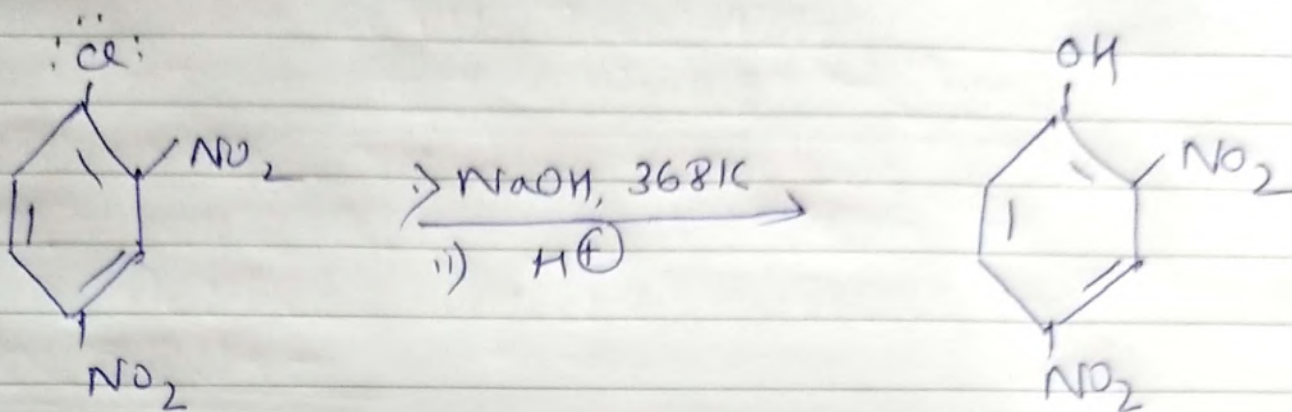 :C̈l:
OH
NO₂
NO₂
i) NaOH, 368K
ii) H⊕
NO₂
NO₂